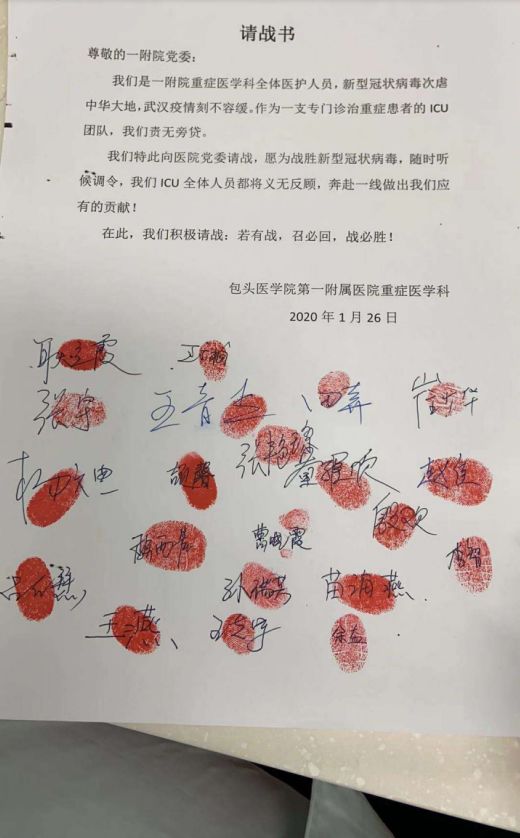 请战书
尊敬的一附院党委：
我们是一附院重症医学科全体医护人员，新型冠状病毒次虐
中华大地，武汉疫情刻不容缓。作为一支专门诊治重症患者的 ICU
团队，我们责无旁贷。
我们特此向医院党委请战，愿为战胜新型冠状病毒，随时听
候调令，我们 ICU 全体人员都将义无反顾，奔赴一线做出我们应
有的贡献！
在此，我们积极请战：若有战，召必回，战必胜！
包头医学院第一附属医院重症医学科
2020 年 1 月 26 日
张宇
胡馨
赵佳
曹晓霞
李智
苗海燕
王燕
徐益